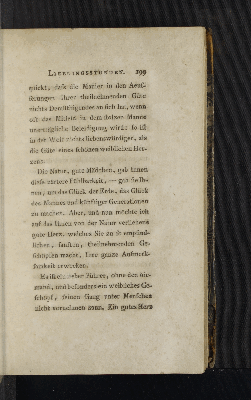 LIEBLINGSSTUNDEN. 199
quickt, daſs die Manier in den Aeuſ-
ſerungen ihrer theilnehmenden Güte
nichts Demüthigendes an ſich hat, wenn
oft das Mitleid in dem ſtolzen Manne
unerträgliche Beleidigung wird: ſo iſt
in der Welt nichts liebenswürdiger, als
die Güte eines ſchönen weiblichen Her-
zens.
Die Natur, gute Mädchen, gab Ihnen
dieſe zartere Fühlbarkeit, — gab ſie Ih-
nen, um das Glück der Erde, das Glück
des Mannes und künftiger Generationen
zu machen. Aber, und nun möchte ich
auf das Ihnen von der Natur verliehene
gute Herz, welches Sie zu ſo empfind-
lichen, ſanften, theilnehmenden Ge-
ſchöpfen macht, Ihre ganze Aufmerk-
ſamkeit erwecken.
ohne den nie-
mand, und beſonders ein weibliches Ge-
ſchöpf, ſeinen Gang unter Menſchen
nicht vornehmen kann. Ein gutes Herz